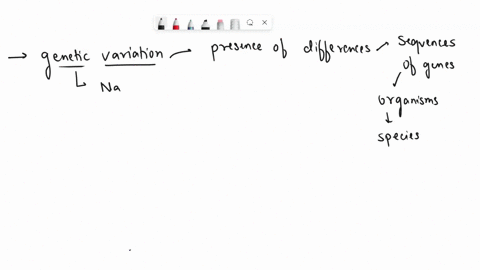 → genetic variation — presence of differences — Sequences
of genes
organisms
↓
species
Na